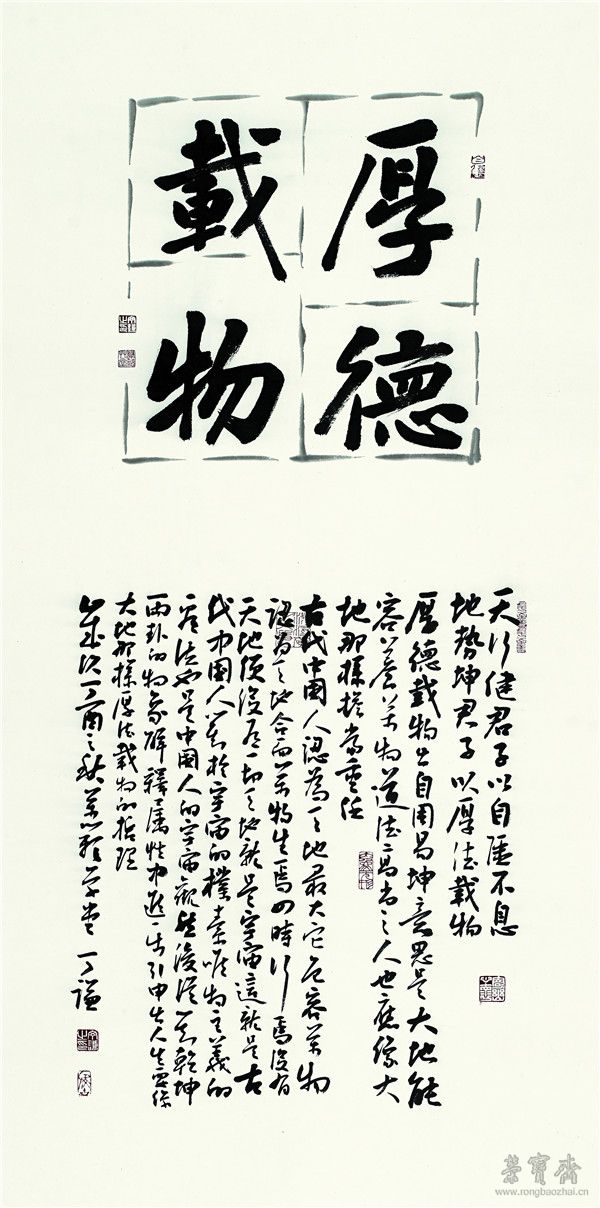 厚德
載物
天行健君子以自彊不息
地勢坤君子以厚德載物
厚德載物出自周易坤意思是大地能
容養萬物道德高尚之人也應像大
地那樣擔當重任
古代中國人認為天地最大它包容萬物
認為天地合而萬物生焉四時行焉沒有
天地便沒有一切天地就是宇宙這就是古
代中國人對於宇宙的樸素唯物主義的
看法也是中國人的宇宙觀然後從對乾坤
兩卦的物象解釋屬性中進一步引申出人生要像
大地那樣厚德載物的哲理
歲次丁酉之秋 丁謙
榮寶齋
www.rongbaozhai.cn